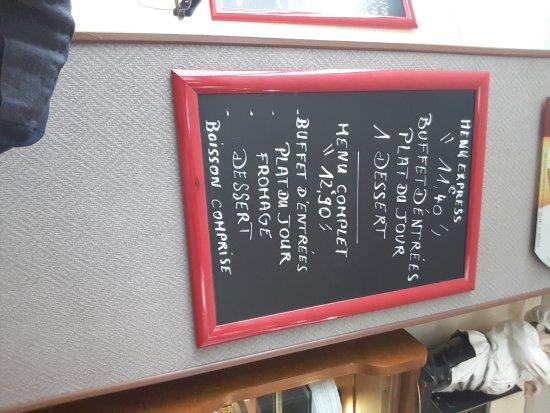 MENU EXPRESS
" 11€40 "
BUFFET D'ENTRÉES
PLAT DU JOUR
1 DESSERT
MENU COMPLET
" 12€,90 "
- BUFFET D'ENTRÉES
- PLAT DU JOUR
- FROMAGE
- DESSERT
BOISSON COMPRISE